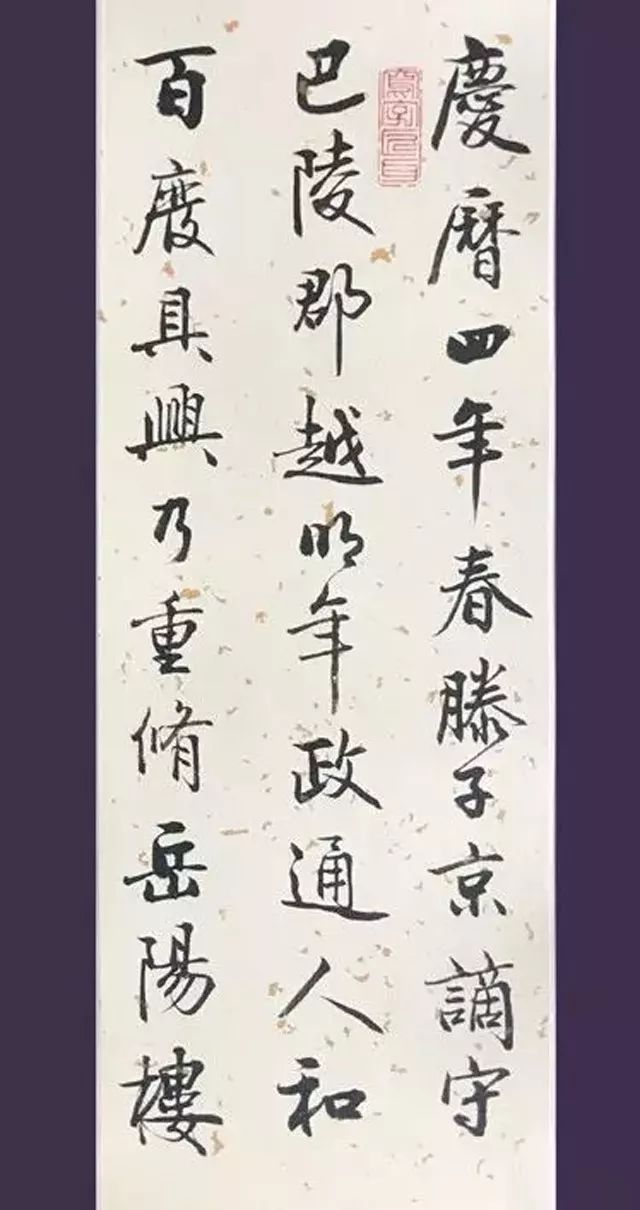 慶曆四年春滕子京謫守
巴陵郡越明年政通人和
百廢具興乃重脩岳陽樓